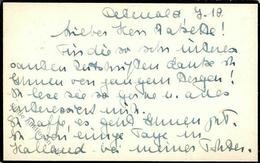 Detmold 9.10.
Lieber Herr
Für die so sehr interes
santen Zeitschriften danke ich
Ihnen von ganzem Herzen!
Ich lese sie so gerne u. alles
interessiert mich.
Ich hoffe, es geht Ihnen gut.
Ich bin einige Tage in
Holland bei meiner Tochter.